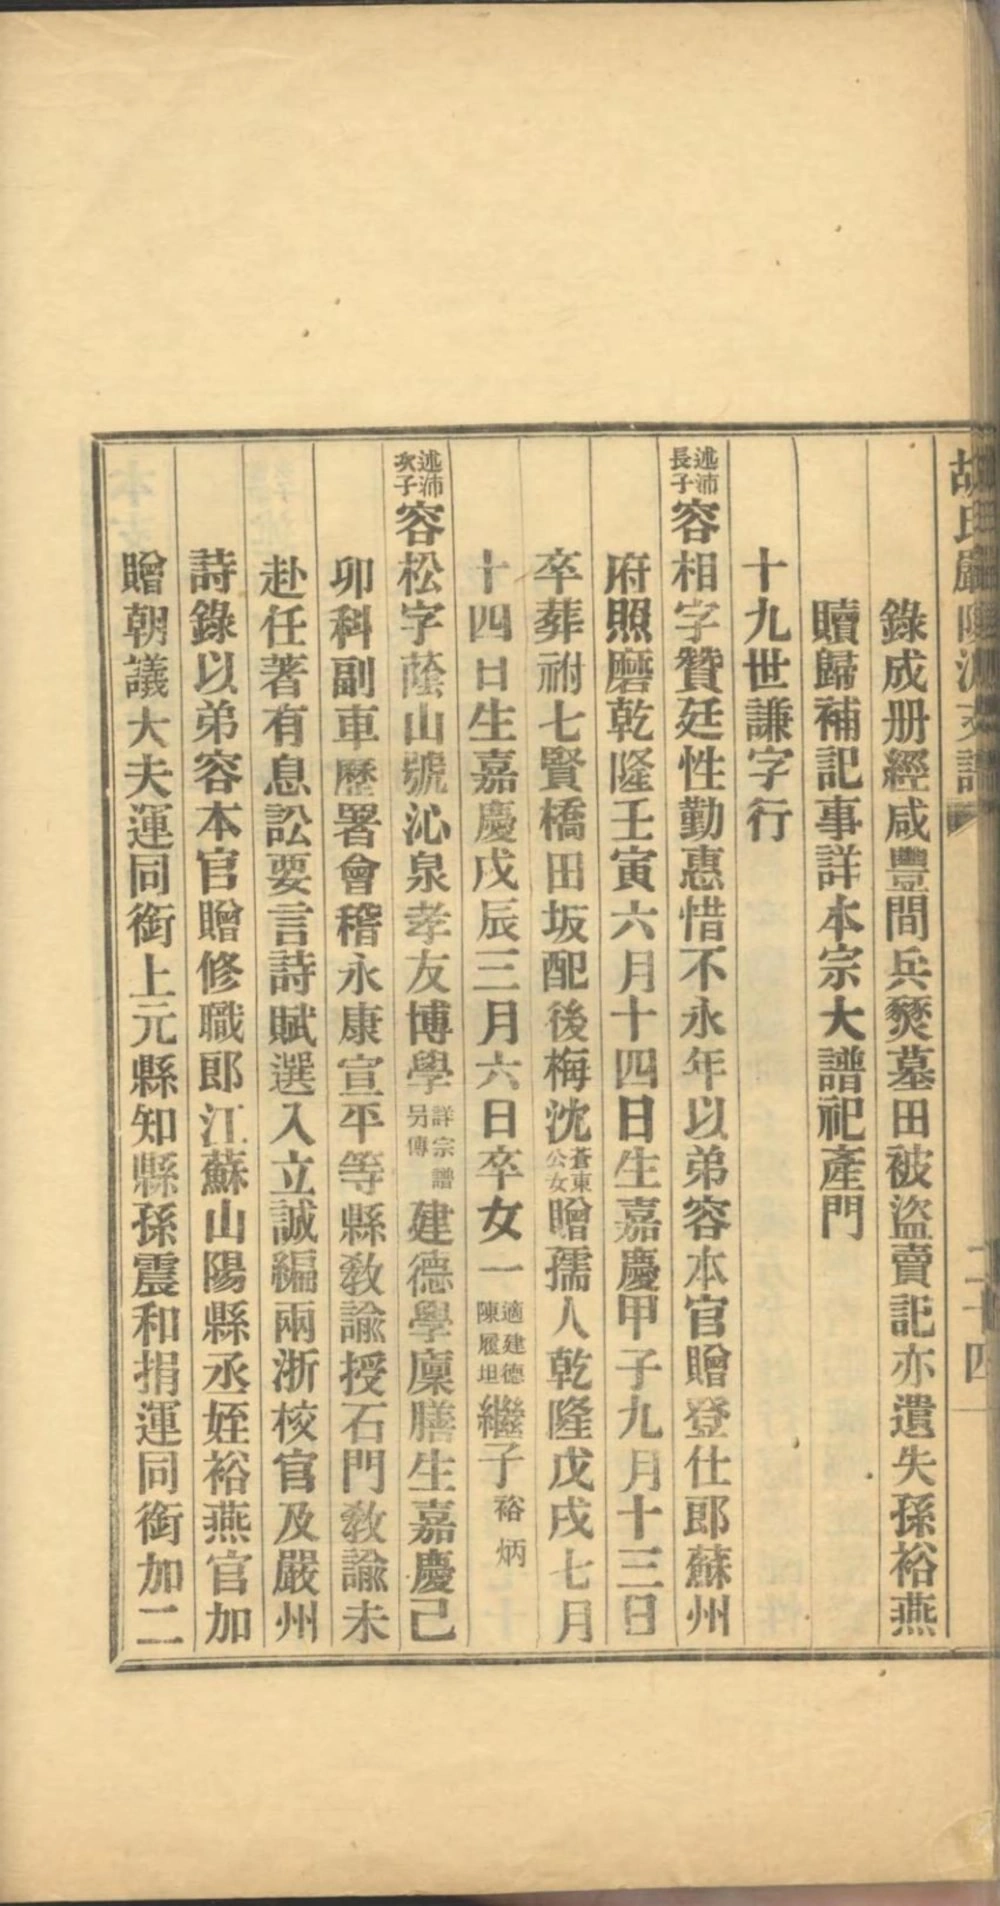 胡氏嚴陵派支譜
二十四
錄成册經咸豐間兵燹墓田被盜賣記亦遺失孫裕燕
贖歸補記事詳本宗大譜祀產門
十九世謙字行
述沛長子容相字贊廷性勤惠惜不永年以弟容本官贈登仕郎蘇州
府照磨乾隆壬寅六月十四日生嘉慶甲子九月十三日
卒葬祔七賢橋田坂配後梅沈蒼東公女贈孺人乾隆戊戌七月
十四日生嘉慶戊辰三月六日卒女一適建德陳履坦繼子裕炳
述沛次子容松字蔭山號沁泉孝友博學詳宗譜另傳建德學廩膳生嘉慶己
卯科副車歷署會稽永康宣平等縣教諭授石門教諭未
赴任著有息訟要言詩賦選入立誠編兩浙校官及嚴州
詩錄以弟容本官贈修職郎江蘇山陽縣丞姪裕燕官加
贈朝議大夫運同銜上元縣知縣孫震和捐運同銜加二